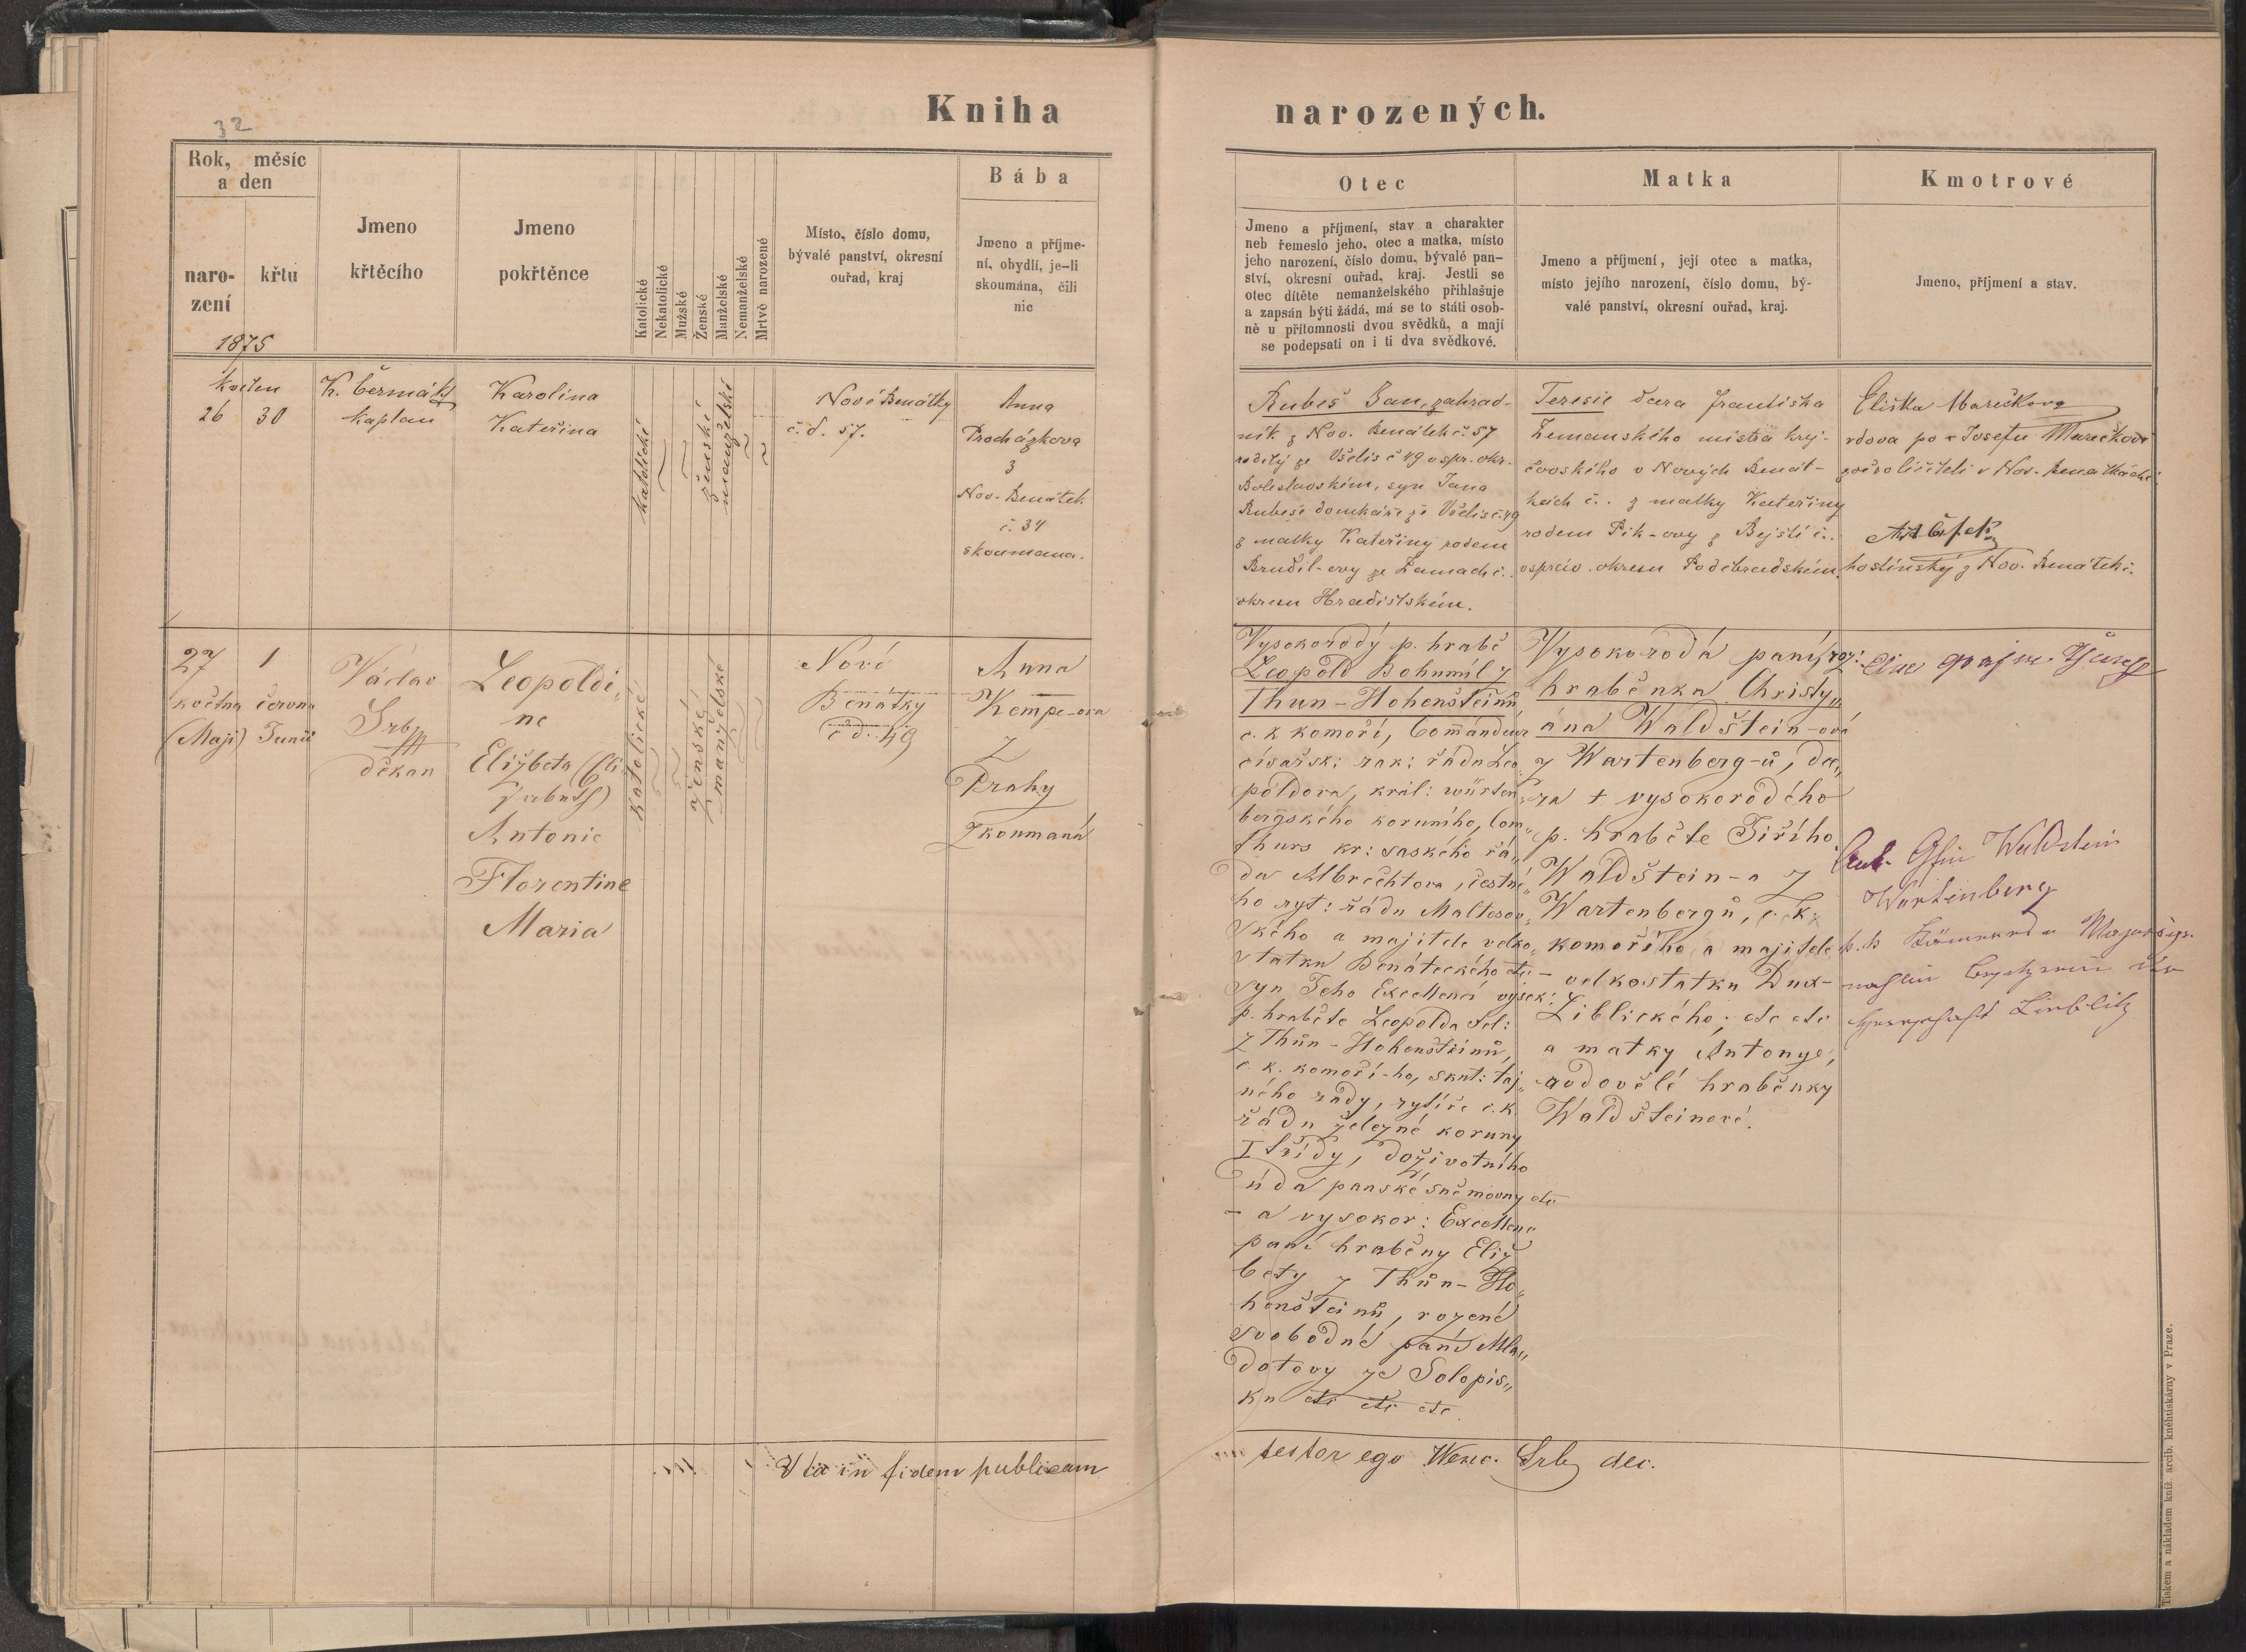 Kniha
narozených.
32
Rok, měsíc
a den
naro-
zení
křtu
1875
Jmeno
křtěcího
Jmeno
pokřtěnce
Katolické
Nekatolické
Mužské
Ženské
Manželské
Nemanželské
Mrtvě narozené
Místo, číslo domu,
bývalé panství, okresní
ouřad, kraj
Bába
Jmeno a příjme-
ní, obydlí, je-li
skoumána, čili
nic
Otec
Jmeno a příjmení, stav a charakter
neb řemeslo jeho, otec a matka, místo
jeho narození, číslo domu, bývalé pan-
ství, okresní ouřad, kraj. Jestli se
otec dítěte nemanželského přihlašuje
a zapsán býti žádá, má se to státi osob-
ně u přítomnosti dvou svědků, a mají
se podepsati on i ti dva svědkové.
Matka
Jmeno a příjmení, její otec a matka,
místo jejího narození, číslo domu, bý-
valé panství, okresní ouřad, kraj.
Kmotrové
Jmeno, příjmení a stav.
květen
26 30
K. Čermák
kaplan
Karolina
Kateřina
katolické
ženské
manželské
Nové Benátky
č. d. 57.
Anna
Procházkova
z
Nov. Benátek
č. 34
skoumana.
Rubeš Jan, zahrad-
ník z Nov. Benátek č. 57
rodilý ze Všelis č 49 v spr. okr.
Boleslavském, syn Jana
Rubeše domkáře ze Všelis č. 49
z matky Kateřiny rodem
okresu Hradištském.
Teresie dcera Františka
Zemanského mistra krej-
čovského v Nových Benát-
kách č.. z matky Kateřiny
rodem Pik-ovy z Bejště č..
v správ. okresu Poděbradském.
Eliška Marečkova
vdova po + Josefu Marečkovi
v Nov. Benátkách
hostinský z Nov. Benátek č.
27
května
(Maji)
1
června
Junii
Václav
Srb
děkan
Leopoldi„
ne
Eližbeta (Eli„
zabeth)
Antonie
Florentine
Maria
Katolické
ženské
manželské
Nové
Benátky
č d: 49
Anna
Kempe-ova
z
Prahy
zkoumaná
Vysokorodý p. hrabě
Leopold Bohumil z
Thun-Hohenšteinů,
c. k komoří, Commandeur
císařsk: rak: řádu Leo„
poldova, král: würtem„
bergského korunního, Com„
thurs kr: saského řá„
du Albrechtova, čestné„
ho ryt: řádu Maltesov„
ského a majitele velko„
statku Benáteckého etc-
syn Jeho Excellencí vysok:
p. hraběte Leopolda sel:
z Thůn-Hohenšteinů,
c. k. komoří-ho, skut: taj„
ného rády, rytíře c. k.
řádu železné koruny
I třídy, doživotního
úda panské sněmovny etc
- a vysokor: Excellenc
paní hraběny Eliž
běty z Thůn-Ho„
henšteinů, rozené
svobodné paní Mla„
dotovy ze Solopis„
ku etc etc etc.
Vysokorodá paní, roz:
hraběnka Christy„
ána Waldštein-ová
z Wartenberg-ů, dce„
ra + vysokorodého
p. hraběte Jiřího
Waldštein-a z
Wartenbergů, c. k.
komořího a majitele
velkostatku Dux-
Liblického; etc etc
a matky Antonye,
ovdovělé hraběnky
Waldšteinové.
Ant. Gfin Waldstein
Wartenberg
Liblitz
Ita in fidem publicam
testor ego Wenc. Srb dec.
Tiskem a nákladem kníž. arcib. kněhtiskárny v Praze.